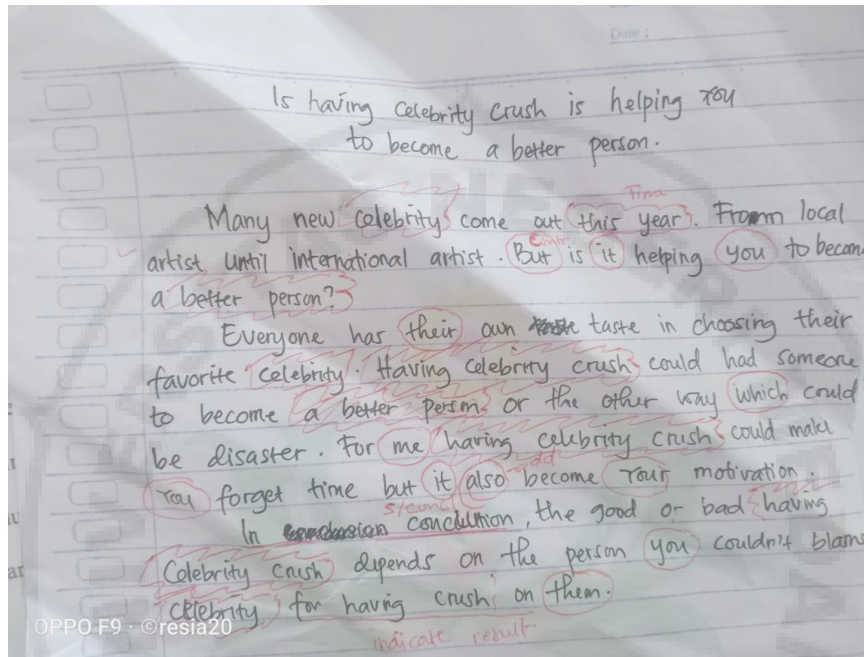 Date :
Is having Celebrity Crush is helping You
to become a better person.
Many new celebrity come out this year. From local
artist until international artist. But is it helping you to becom
a better person?
Everyone has their own taste in choosing their
favorite celebrity. Having celebrity crush could had someone
to become a better person or the other way which could
be disaster. For me having celebrity crush could make
You forget time but it also become Your motivation.
In conclution, the good or bad having
Celebrity Crush depends on the person you couldn't blame
celebrity for having crush on them.
indicate result
OPPO F9 · ©resia20